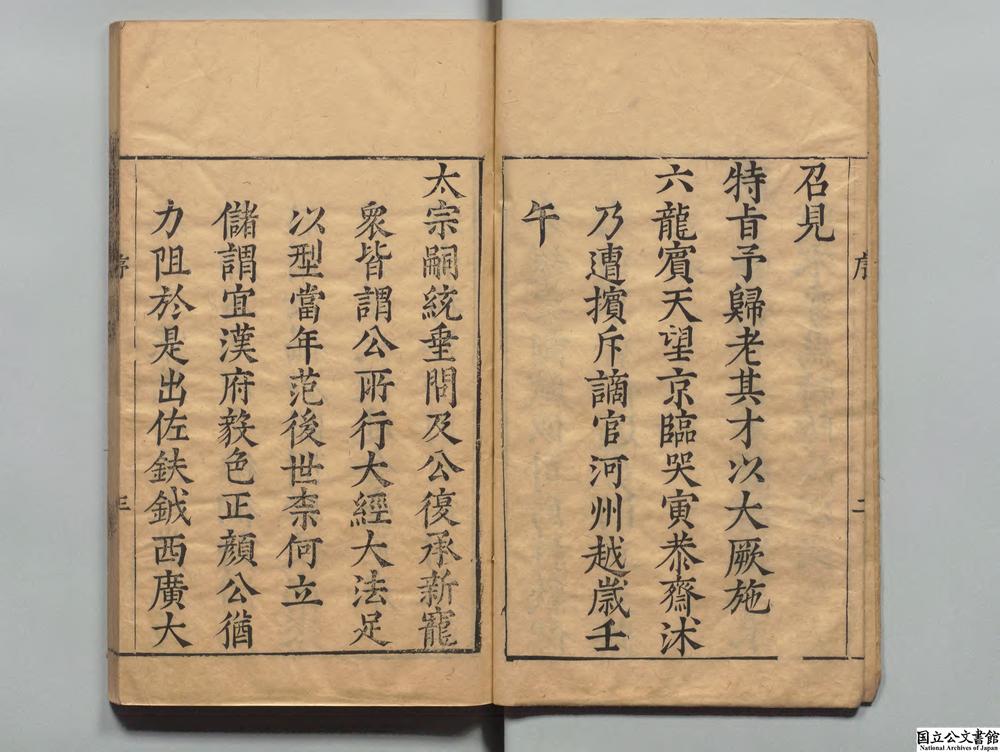 召見
特旨予歸老其才以大厥施
六龍賓天望京臨哭寅恭齋沭
乃遭擯斥謫官河州越歲壬
午
太宗嗣統垂問及公復承新寵
衆皆謂公所行大經大法足
以型當年范後世柰何立
儲謂宜漢府毅色正顔公猶
力阻於是出佐鈇鉞西廣大
序
二
序
三
国立公文書館
National Archives of Japan